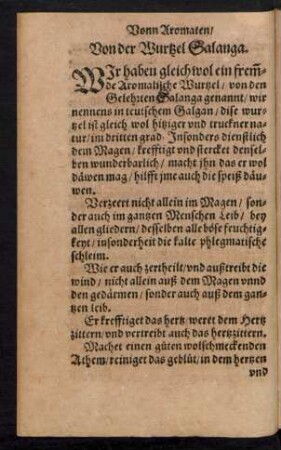 Vonn Aromaten/
Von der Wurtzel Galanga.
WJr haben gleich wol ein frem̃-
de Aromatische Wurtzel / von den
Gelehrten Galanga genannt / wir
nennens in teutschem Galgan / dise wur-
tzel ist gleich wol hitziger vnd truckner na-
tur / im dritten grad. Insonders dienstlich
dem Magen / krefftigt vnd stercket densel-
ben wunderbarlich / macht jhn das er wol
däwen mag / hilfft jme auch die speiß däu-
wen.
Verzeert nicht allein im Magen / son-
der auch im gantzen Menschen Leib / bey
allen gliedern / desselben alle böse feuchtig-
keyt / insonderheit die kalte phlegmatische
schleim.
Wie er auch zertheilt / vnd außtreibt die
wind / nicht allein auß dem Magen vnnd
den gedärmen / sonder auch auß dem gan-
tzen leib.
Er krefftiget das hertz / weret dem Hertz
zittern / vnd vertreibt auch das hertzzittern.
Machet einen gůten wolschmeckenden
Athem / reiniget das geblüt / in dem hertzen
vnd